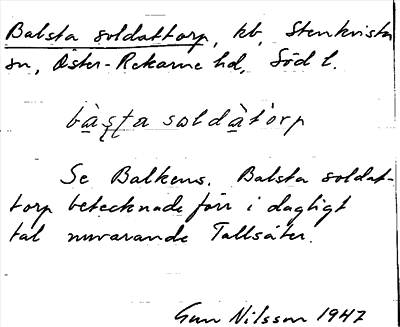 Balsta soldattorp, kb, Stenkvista
sn, Öster-Rekarne hd, Södl.
bàsta soldàtòrp
Se Balkens. Balsta soldat-
torp betecknade förr i dagligt
tal nuvarande Tallsäter.
Gun Nilsson 1947